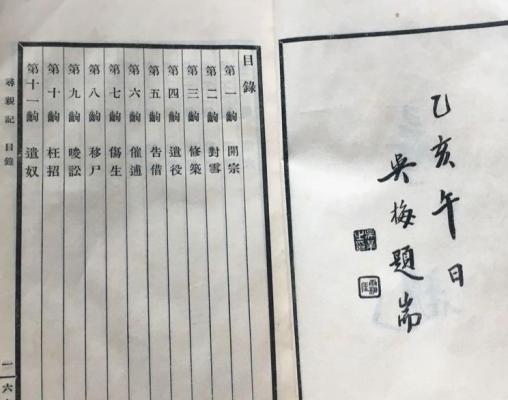 乙亥午日
吳梅題耑
目錄
第一齣 開宗
第二齣 對雪
第三齣 修築
第四齣 遣役
第五齣 告借
第六齣 催逋
第七齣 傷生
第八齣 移尸
第九齣 唆訟
第十齣 枉招
第十一齣 遣奴
尋親記 目錄
一 六